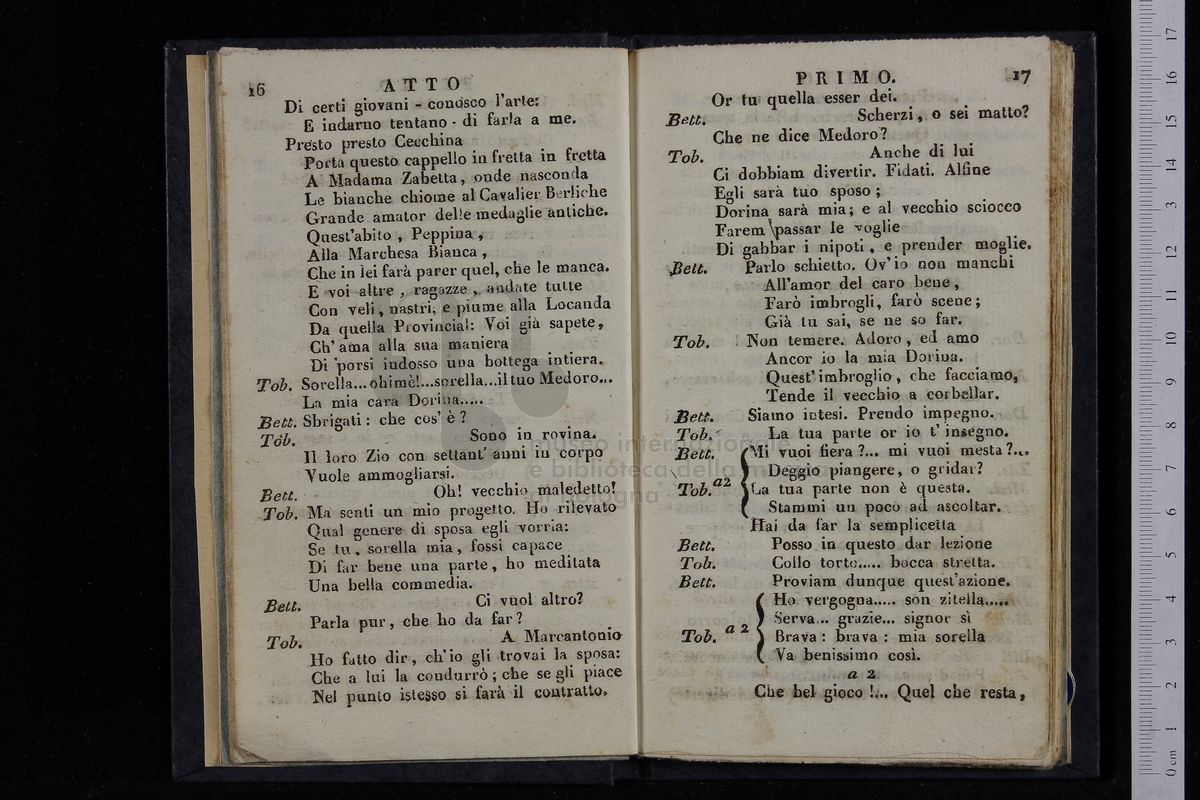 16 ATTO
Di certi giovani - conosco l'arte:
E indarno tentano - di farla a me.
Presto presto Cecchina
Porta questo cappello in fretta in fretta
A Madama Zabetta, onde nasconda
Le bianche chiome al Cavalier Berliche
Grande amator delle medaglie antiche.
Quest'abito, Peppina,
Alla Marchesa Bianca,
Che in lei farà parer quel, che le manca.
E voi altre, ragazze, andate tutte
Con veli, nastri, e piume alla Locanda
Da quella Provincial: Voi già sapete,
Ch'ama alla sua maniera
Di porsi indosso una bottega intiera.
Tob. Sorella... ohimè!...sorella...il tuo Medoro...
La mia cara Dorina.....
Bett. Sbrigati: che cos' è?
Tob. Sono in rovina.
Il loro Zio con settant' anni in corpo
Vuole ammogliarsi.
Bett. Oh! vecchio maledetto!
Tob. Ma senti un mio progetto. Ho rilevato
Qual genere di sposa egli vorria:
Se tu, sorella mia, fossi capace
Di far bene una parte, ho meditata
Una bella commedia.
Bett. Ci vuol altro?
Parla pur, che ho da far?
Tob. A Marcantonio
Ho fatto dir, ch'io gli trovai la sposa:
Che a lui la condurrò; che se gli piace
Nel punto istesso si farà il contratto.
PRIMO. 17
Or tu quella esser dei.
Bett. Scherzi, o sei matto?
Che ne dice Medoro?
Tob. Anche di lui
Ci dobbiam divertir. Fidati. Alfine
Egli sarà tuo sposo;
Dorina sarà mia; e al vecchio sciocco
Farem passar le voglie
Di gabbar i nipoti, e prender moglie.
Bett. Parlo schietto. Ov'io non manchi
All'amor del caro bene,
Farò imbrogli, farò scene;
Già tu sai, se ne so far.
Tob. Non temere. Adoro, ed amo
Ancor io la mia Dorina.
Quest'imbroglio, che facciamo,
Tende il vecchio a corbellar.
Bett. Siamo intesi. Prendo impegno.
Tob. La tua parte or io t'insegno.
Bett. Mi vuoi fiera?... mi vuoi mesta?...
Deggio piangere, o gridar?
Tob. a 2 La tua parte non è questa.
Stammi un poco ad ascoltar.
Hai da far la semplicetta
Bett. Posso in questo dar lezione
Tob. Collo torto..... bocca stretta.
Bett. Proviam dunque quest'azione.
Ho vergogna..... son zitella.....
Serva... grazie... signor sì
Tob. a 2 Brava: brava: mia sorella
Va benissimo così.
a 2
Che bel gioco!... Quel che resta,
museo internazionale
e biblioteca della musica
di bologna
0 cm 1 2 3 4 5 6 7 8 9 10 11 12 13 14 15 16 17